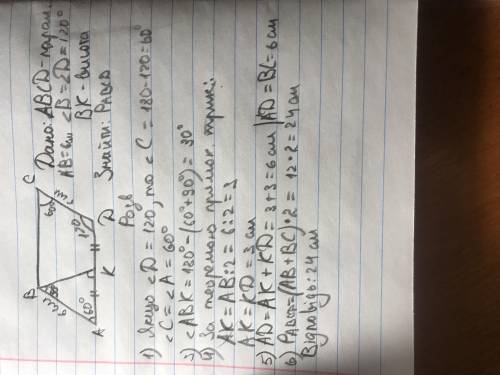 Дано: ABCD-парал.
AB=6см ∠B=∠D=120°
BK-висота
Знайти: PABCD
B
C
A
K
D
60°
60°
120°
Розв
1) Якщо ∠D=120, то ∠C=180-120=60°
∠C=∠A=60°
3) ∠ABK=180°-(60°+90°)=30°
4) За теоремою прямок. трик.:
AK=AB:2=6:2=3
AK=KD=3см
5) AD=AK+KD=3+3=6см | AD=BC=6см
6) PABCD=(AB+BC)•2=12•2=24см
Відповідь: 24см